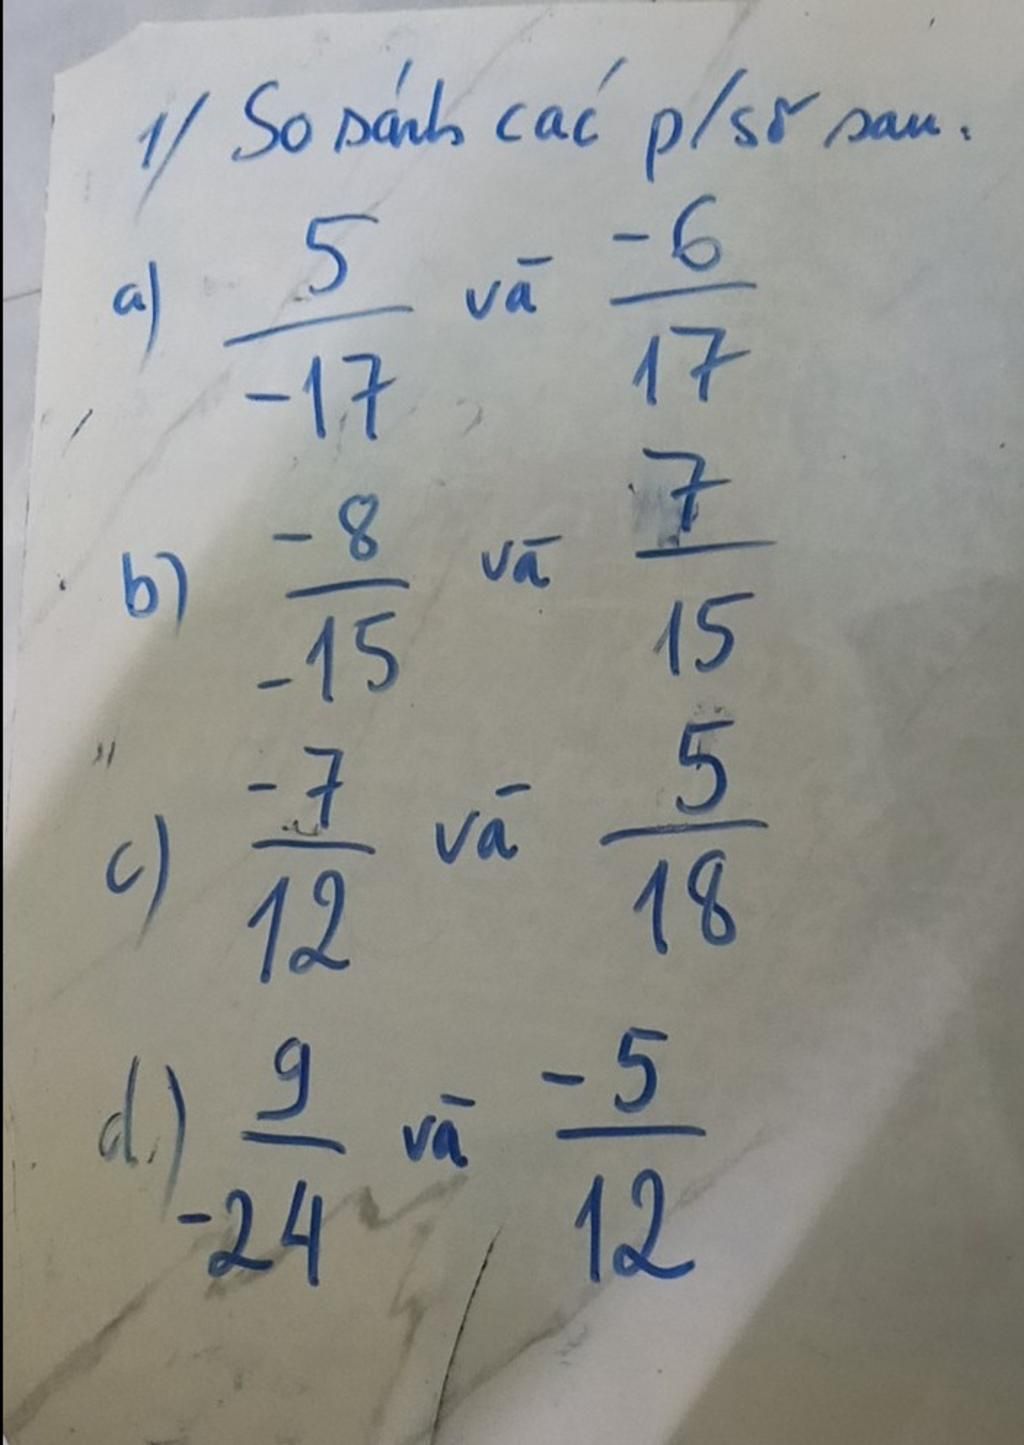 1/ So sánh các p/số sau.
a) 5/-17 và -6/17
b) -8/-15 và 7/15
c) -7/12 và 5/18
d.) 9/-24 và -5/12